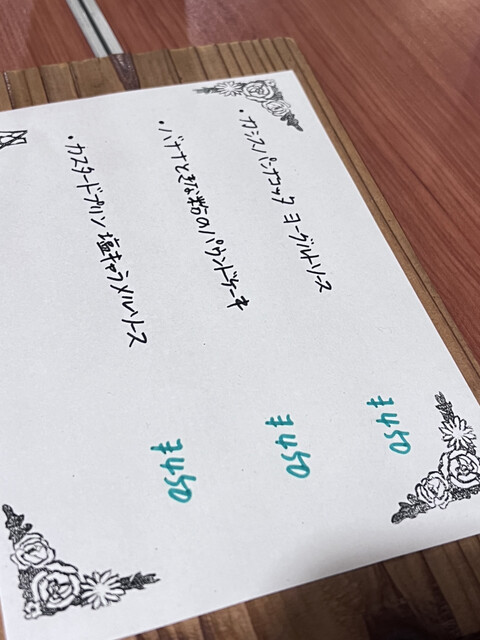 ・カシスパンナコッタ ヨーグルトソース ¥450
・バナナときな粉のパウンドケーキ ¥450
・カスタードプリン 塩キャラメルソース ¥450